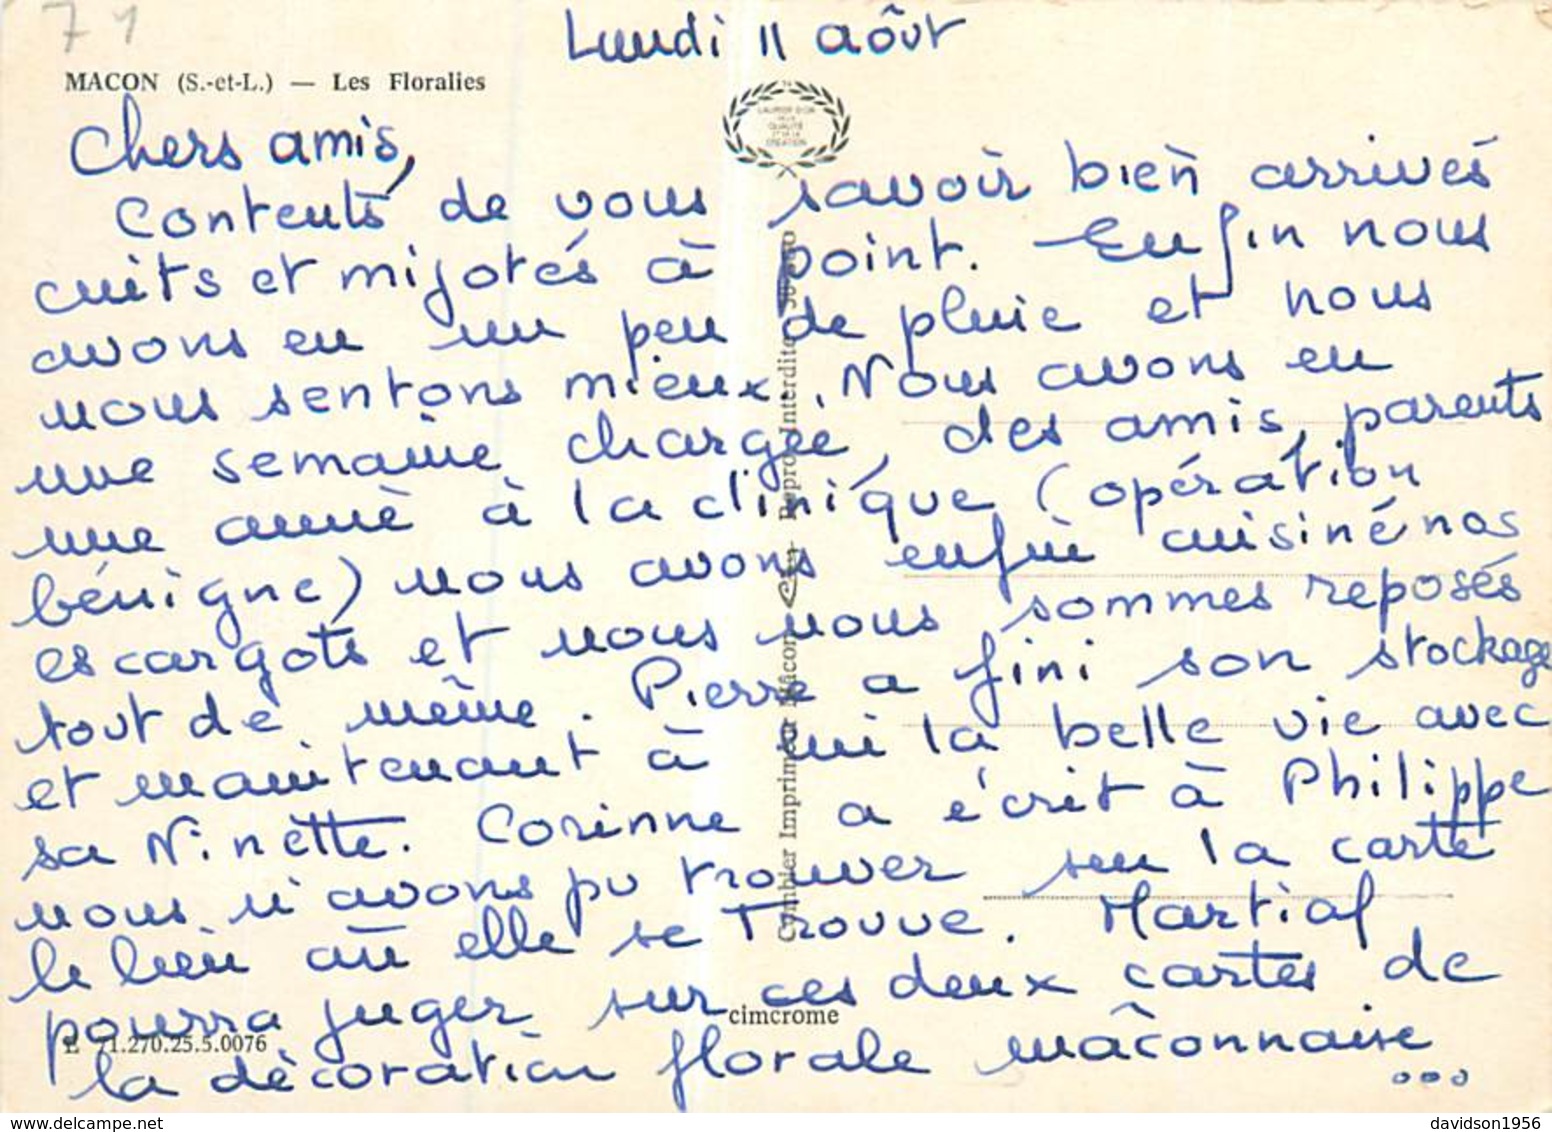 71
Lundi 11 août
MACON (S.-et-L.) — Les Floralies
LAURIER D'OR
DE LA
QUALITÉ
ET DE LA
CRÉATION
Chers amis,
Contents de vous savoir bien arrivés
cuits et mijotés à point. Enfin nous
avons eu un peu de pluie et nous
nous sentons mieux. Nous avons eu
une semaine chargée, des amis, parents
une amie à la clinique (opération
bénigne) nous avons enfin cuisiné nos
escargots et nous nous sommes reposés
tout de même. Pierre a fini son stockage
et maintenant à lui la belle vie avec
sa Ninette. Corinne a écrit à Philippe
nous n'avons pu trouver sur la carte
le lieu où elle se trouve. Martial
pourra juger sur ces deux cartes de
la décoration florale mâconnaise
...
Combier Imprimeur Mâcon
Repro. Interdite
cimcrome
E 71.270.25.5.0076
davidson1956